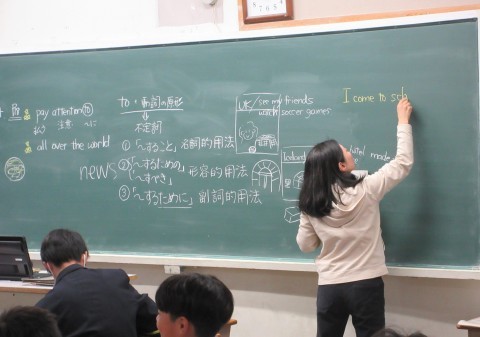 pay attention to
払う 注意 〜に
all over the world
new
to + 動詞の原形
不定詞
① 「〜すること」名詞的用法
② 「〜するための」形容的用法
「〜すべき」
③ 「〜するために」副詞的用法
UK / see my friends
watch soccer games
I come to sch